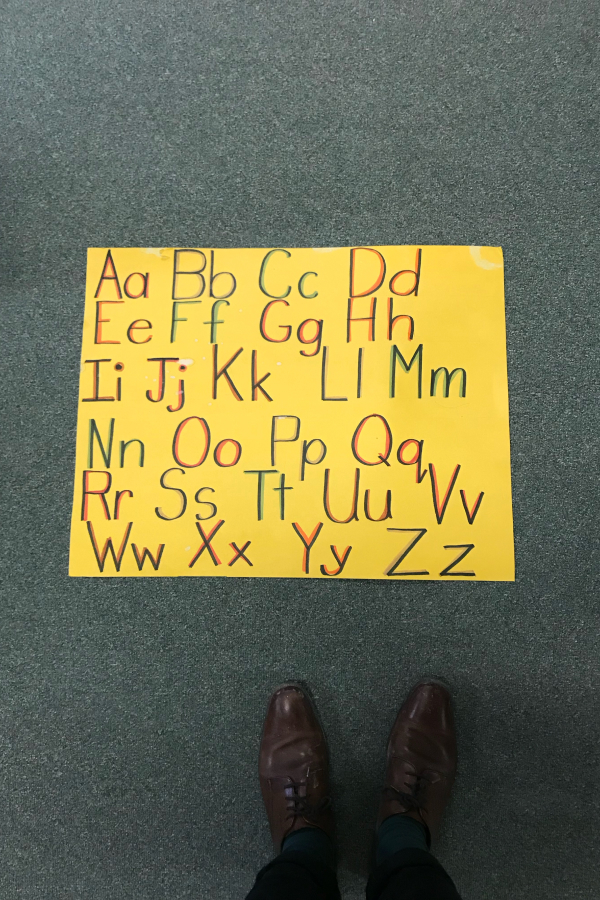 Aa Bb Cc Dd
Ee Ff Gg Hh
Ii Jj Kk Ll Mm
Nn Oo Pp Qq
Rr Ss Tt Uu Vv
Ww Xx Yy Zz